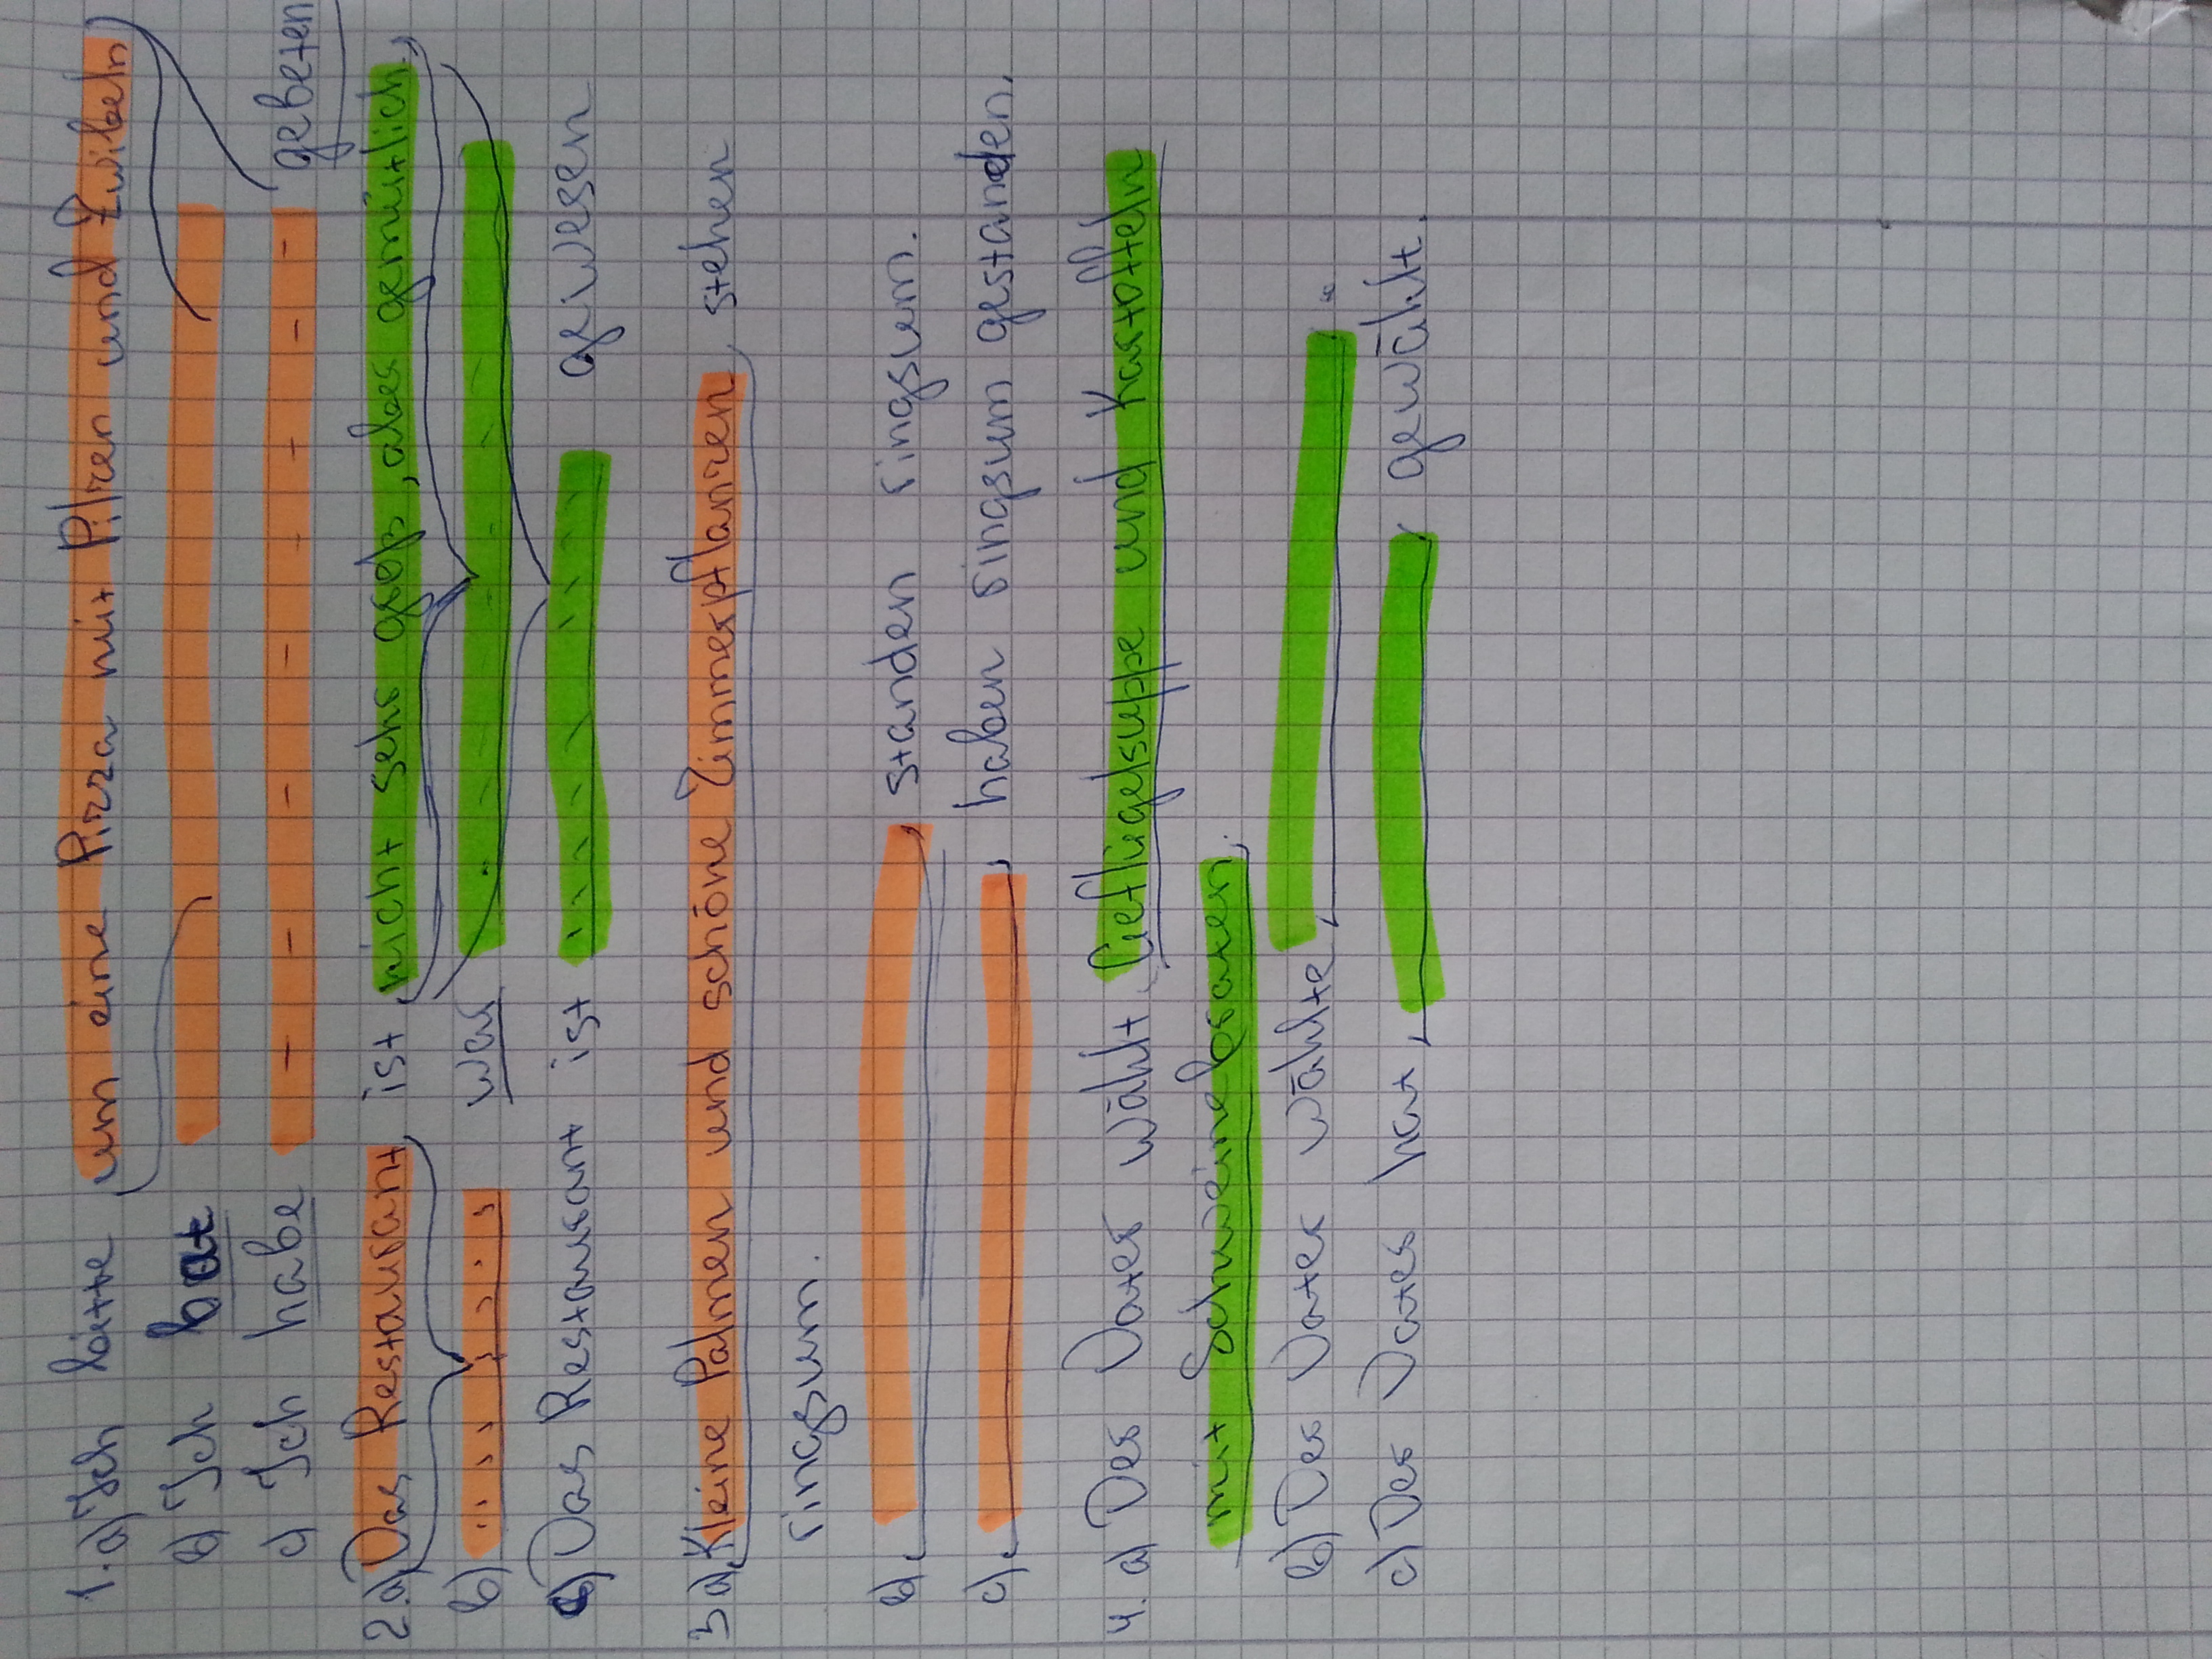 1. a) Ich bitte um eine Pizza mit Pilzen und Zwibeln
b) Ich bat
c) Ich habe - - - - - - - - gebeten
2. a) Das Restaurant ist nicht sehr groß, aber gemütlich.
b) war
c) Das Restaurant ist gewesen
3 a) Kleine Palmen und schöne Zimmerpflanzen stehen
ringsum.
b) standen ringsum.
c) haben ringsum gestanden.
4. a) Der Vater wählt Geflügelsuppe und Kartoffeln
mit Schweinebraten.
b) Der Vater wählte
c) Der Vater hat gewählt.